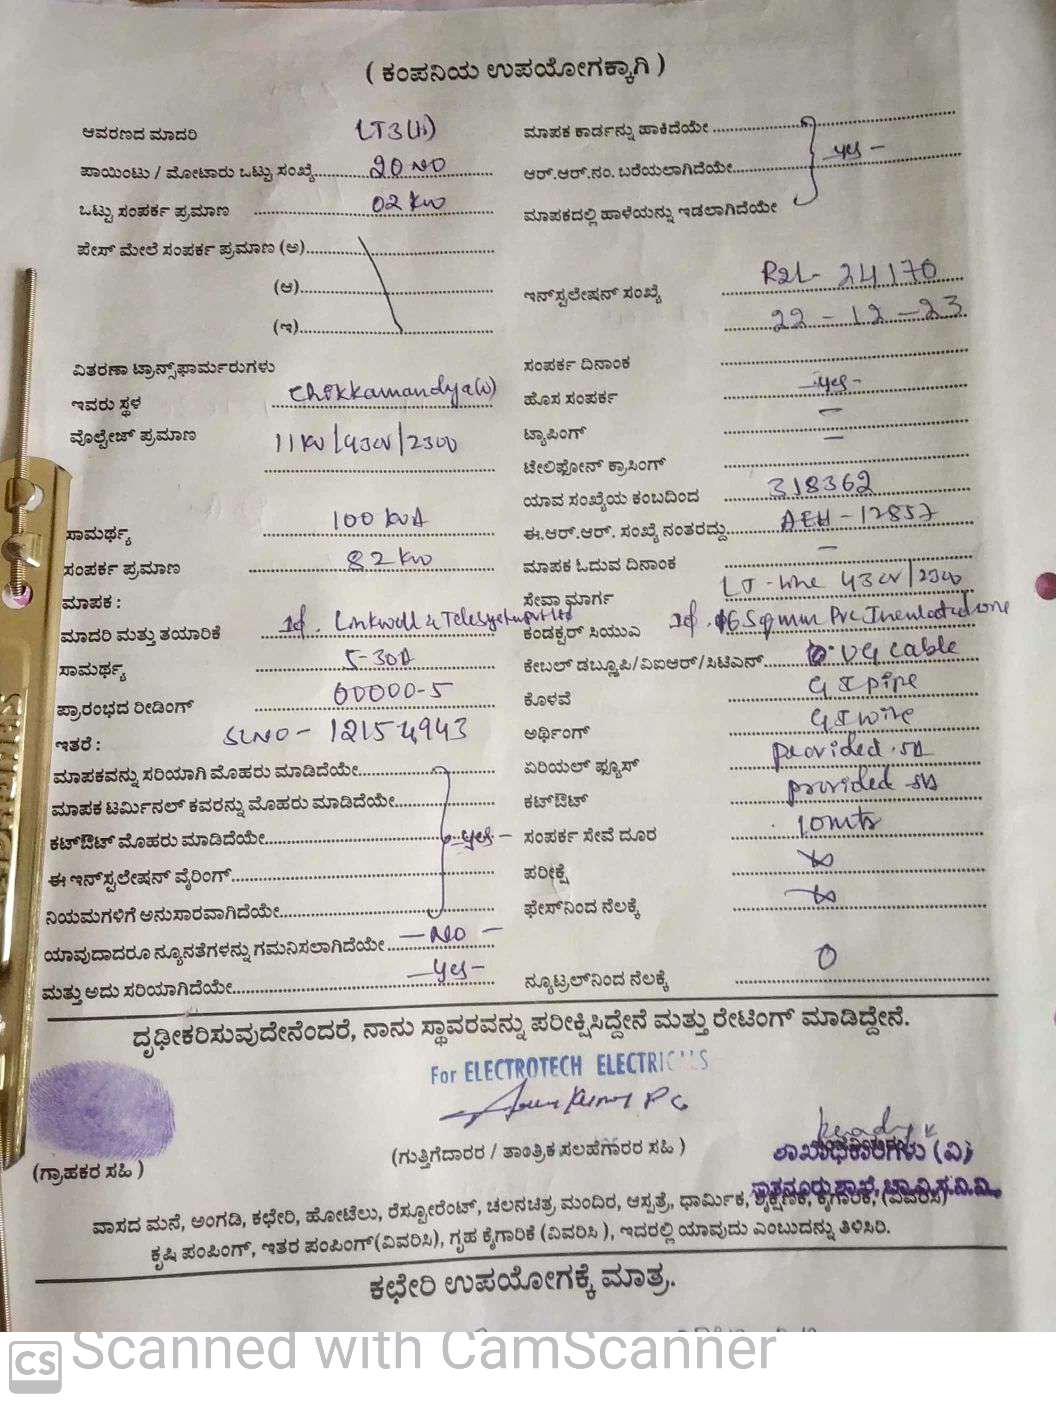 ( ಕಂಪನಿಯ ಉಪಯೋಗಕ್ಕಾಗಿ )
ಆವರಣದ ಮಾದರಿ LT3(ii)
ಪಾಯಿಂಟು / ಮೋಟಾರು ಒಟ್ಟು ಸಂಖ್ಯೆ 20 NO
ಒಟ್ಟು ಸಂಪರ್ಕ ಪ್ರಮಾಣ 02 KW
ಪೇಸ್ ಮೇಲೆ ಸಂಪರ್ಕ ಪ್ರಮಾಣ (ಅ)
(ಆ)
(ಇ)
ವಿತರಣಾ ಟ್ರಾನ್ಸ್‌ಫಾರ್ಮರುಗಳು
ಇವರು ಸ್ಥಳ Chikkamandya(v)
ವೊಲ್ಟೇಜ್ ಪ್ರಮಾಣ 11KV/430V/230V
ಸಾಮರ್ಥ್ಯ 100 KVA
ಸಂಪರ್ಕ ಪ್ರಮಾಣ 82 KW
ಮಾಪಕ :
ಮಾದರಿ ಮತ್ತು ತಯಾರಿಕೆ 1ф. Linkwell
ಸಾಮರ್ಥ್ಯ 5-30A
ಪ್ರಾರಂಭದ ರೀಡಿಂಗ್ 00000-5
ಇತರೆ : SLNO - 12154943
ಮಾಪಕವನ್ನು ಸರಿಯಾಗಿ ಮೊಹರು ಮಾಡಿದೆಯೇ
ಮಾಪಕ ಟರ್ಮಿನಲ್ ಕವರನ್ನು ಮೊಹರು ಮಾಡಿದೆಯೇ
ಕಟ್‌ಔಟ್ ಮೊಹರು ಮಾಡಿದೆಯೇ yes -
ಈ ಇನ್‌ಸ್ಟಲೇಷನ್ ವೈರಿಂಗ್
ನಿಯಮಗಳಿಗೆ ಅನುಸಾರವಾಗಿದೆಯೇ
ಯಾವುದಾದರೂ ನ್ಯೂನತೆಗಳನ್ನು ಗಮನಿಸಲಾಗಿದೆಯೇ - NO -
ಮತ್ತು ಅದು ಸರಿಯಾಗಿದೆಯೇ - yes -
ಮಾಪಕ ಕಾರ್ಡನ್ನು ಹಾಕಿದೆಯೇ
ಆರ್.ಆರ್.ನಂ. ಬರೆಯಲಾಗಿದೆಯೇ yes -
ಮಾಪಕದಲ್ಲಿ ಹಾಳೆಯನ್ನು ಇಡಲಾಗಿದೆಯೇ
ಇನ್‌ಸ್ಟಲೇಷನ್ ಸಂಖ್ಯೆ R2L- 24170
22 - 12 - 23
ಸಂಪರ್ಕ ದಿನಾಂಕ
ಹೊಸ ಸಂಪರ್ಕ - yes -
ಟ್ಯಾಪಿಂಗ್ -
ಟೇಲಿಫೋನ್ ಕ್ರಾಸಿಂಗ್ -
ಯಾವ ಸಂಖ್ಯೆಯ ಕಂಬದಿಂದ 318362
ಈ.ಆರ್.ಆರ್. ಸಂಖ್ಯೆ ನಂತರದ್ದು AEH - 12857
ಮಾಪಕ ಓದುವ ದಿನಾಂಕ -
ಸೇವಾ ಮಾರ್ಗ LT - line 430V/230V
ಕಂಡಕ್ಟರ್ ಸಿಯುಎ 1ф. 16 Sqmm Pvc Insulated
ಕೇಬಲ್ ಡಬ್ಲ್ಯೂಪಿ/ವಿಐಆರ್/ಸಿಟಿಎನ್ UG cable
ಕೊಳವೆ GI pipe
ಅರ್ಥಿಂಗ್ GI wire
ಏರಿಯಲ್ ಫ್ಯೂಸ್ provided 5A
ಕಟ್‌ಔಟ್ provided 5A
ಸಂಪರ್ಕ ಸೇವೆ ದೂರ 10mts
ಪರೀಕ್ಷೆ ∞
ಫೇಸ್‌ನಿಂದ ನೆಲಕ್ಕೆ ∞
ನ್ಯೂಟ್ರಲ್‌ನಿಂದ ನೆಲಕ್ಕೆ 0
ದೃಢೀಕರಿಸುವುದೇನೆಂದರೆ, ನಾನು ಸ್ಥಾವರವನ್ನು ಪರೀಕ್ಷಿಸಿದ್ದೇನೆ ಮತ್ತು ರೇಟಿಂಗ್ ಮಾಡಿದ್ದೇನೆ.
For ELECTROTECH ELECTRICALS
(ಗುತ್ತಿಗೆದಾರರ / ತಾಂತ್ರಿಕ ಸಲಹೆಗಾರರ ಸಹಿ )
ಶಾಖಾಧಿಕಾರಿಗಳು (ವಿ)
(ಗ್ರಾಹಕರ ಸಹಿ )
ವಾಸದ ಮನೆ, ಅಂಗಡಿ, ಕಛೇರಿ, ಹೋಟೆಲು, ರೆಸ್ಟೋರೆಂಟ್, ಚಲನಚಿತ್ರ ಮಂದಿರ, ಆಸ್ಪತ್ರೆ, ಧಾರ್ಮಿಕ, ಶೈಕ್ಷಣಿಕ, ಕೈಗಾರಿಕೆ, (ವಿವರಿಸಿ)
ಕೃಷಿ ಪಂಪಿಂಗ್, ಇತರ ಪಂಪಿಂಗ್(ವಿವರಿಸಿ), ಗೃಹ ಕೈಗಾರಿಕೆ (ವಿವರಿಸಿ ), ಇದರಲ್ಲಿ ಯಾವುದು ಎಂಬುದನ್ನು ತಿಳಿಸಿರಿ.
ಕಛೇರಿ ಉಪಯೋಗಕ್ಕೆ ಮಾತ್ರ.
CS Scanned with CamScanner